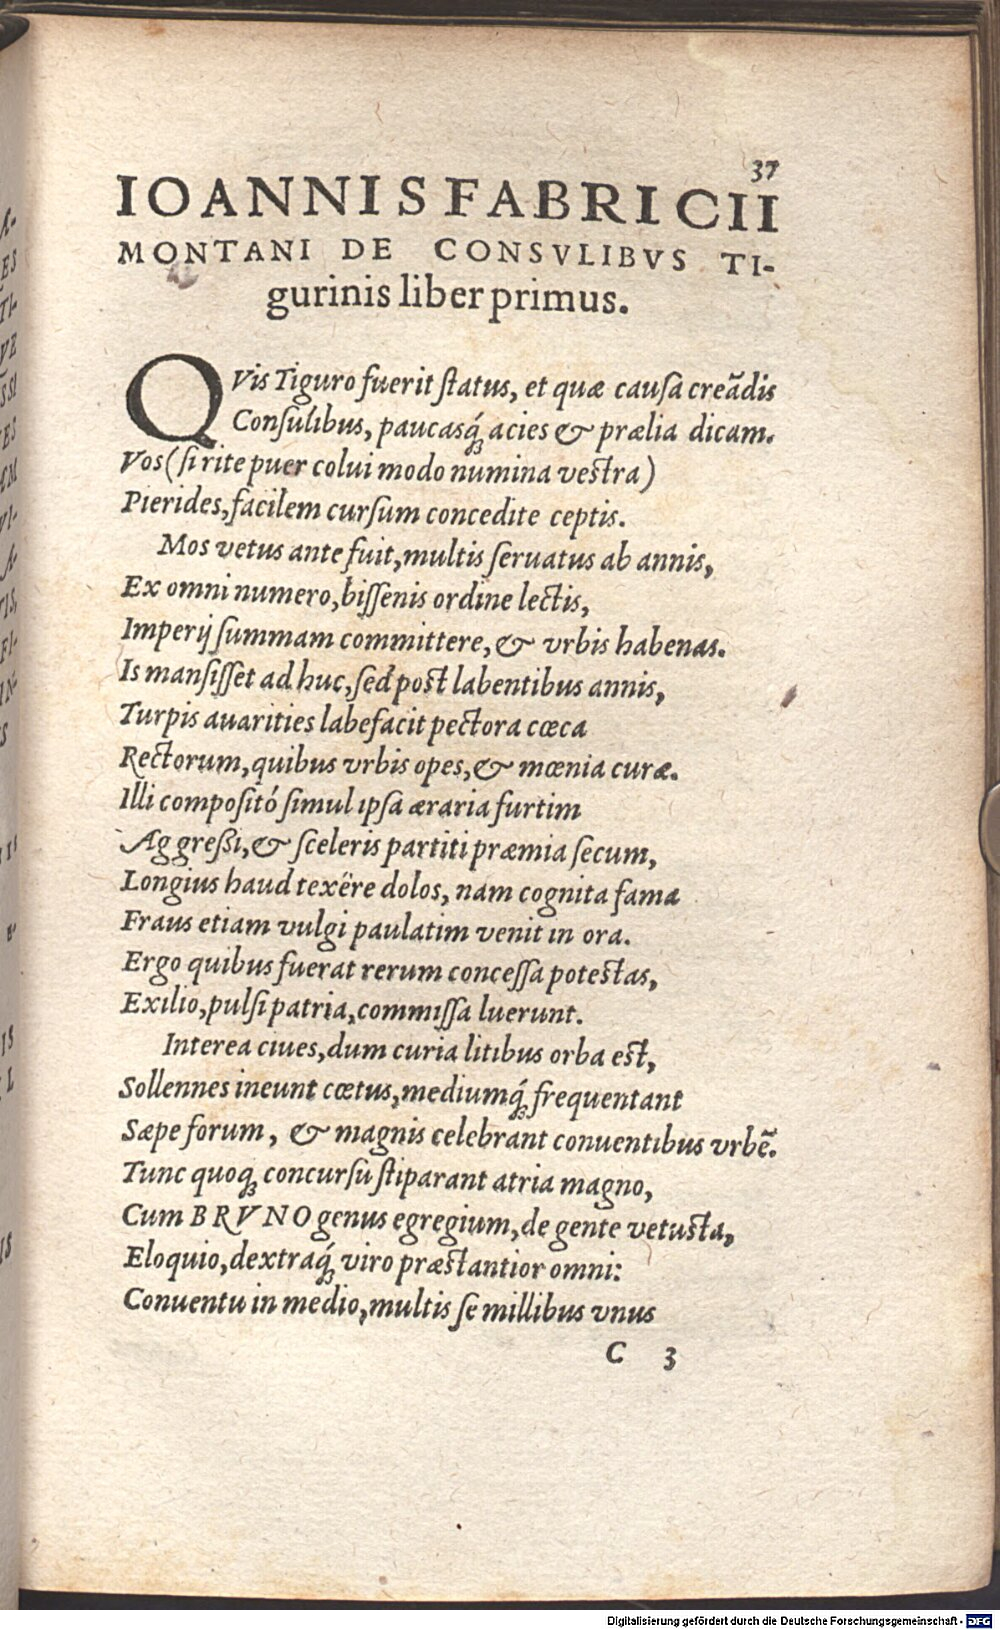 37
IOANNIS FABRICII
MONTANI DE CONSVLIBVS TI-
gurinis liber primus.
QVis Tiguro fuerit ſtatus, et quæ cauſa creãdis
Conſulibus, paucasq́; acies & prælia dicam.
Vos (ſi rite puer colui modo numina veſtra)
Pierides, facilem curſum concedite ceptis.
Mos vetus ante fuit, multis ſeruatus ab annis,
Ex omni numero, biſſenis ordine lectis,
Imperij ſummam committere, & vrbis habenas.
Is manſiſſet ad huc, ſed poſt labentibus annis,
Turpis auarities labefacit pectora cœca
Rectorum, quibus vrbis opes, & mœnia curæ.
Illi compoſitó ſimul ipſa æraria furtim
Aggreßi, & ſceleris partiti præmia ſecum,
Longius haud texëre dolos, nam cognita fama
Fraus etiam vulgi paulatim venit in ora.
Ergo quibus fuerat rerum conceſſa poteſtas,
Exilio, pulſi patria, commiſſa luerunt.
Interea ciues, dum curia litibus orba eſt,
Sollennes ineunt cœtus, mediumq́; frequentant
Sæpe forum, & magnis celebrant conuentibus vrbẽ.
Tunc quoq; concurſu ſtiparant atria magno,
Cum BRVNO genus egregium, de gente vetuſta,
Eloquio, dextraq́; viro præſtantior omni:
Conuentu in medio, multis ſe millibus vnus
C 3
Digitalisierung gefördert durch die Deutsche Forschungsgemeinschaft - DFG